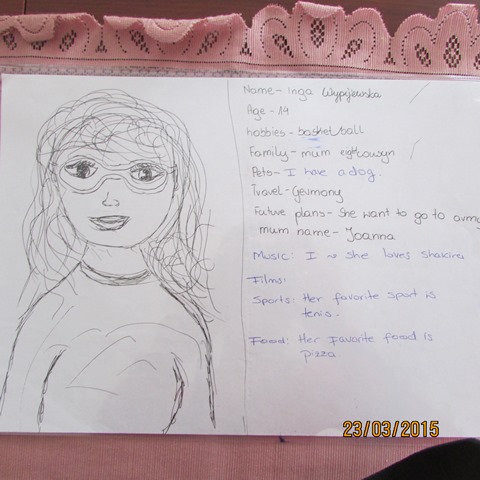 Name - Inga Wypijewska
Age - 14
hobbies - basketball
Family - mum
Pets - I have a dog.
Travel - Germany
Future plans - She want to go to army
mum name - Joanna
Music: I she loves Shakira
Films:
Sports: Her favorite sport is
tenis.
Food: Her favorite food is
pizza
23/03/2015